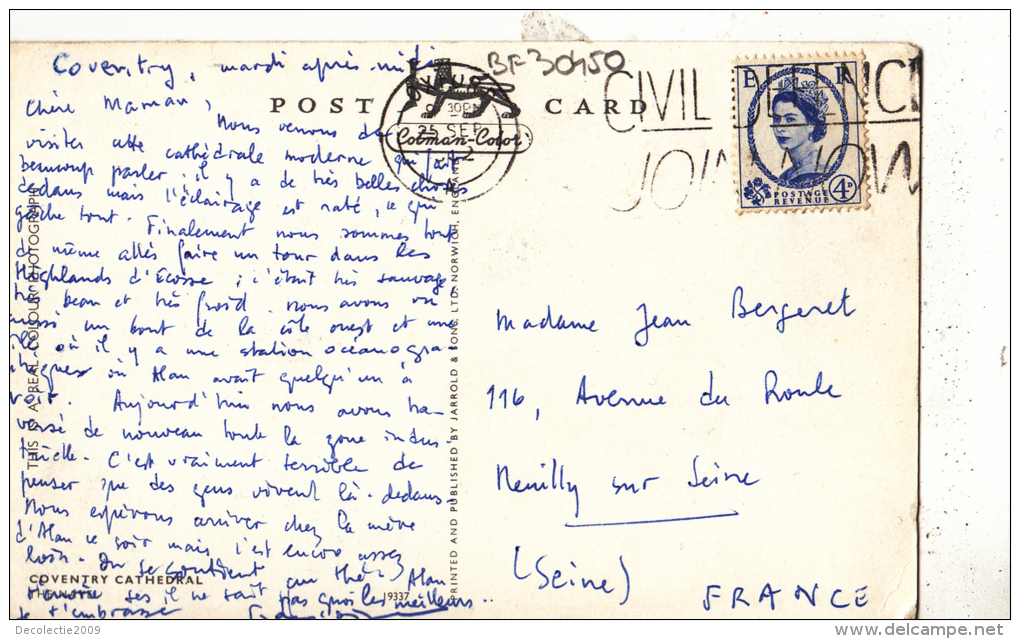 Coventry, mardi après-midi
Chère Maman,
Nous venons de
visiter cette cathédrale moderne qui fait
beaucoup parler ; il y a de très belles choses
dedans mais l'éclairage est raté, ce qui
gâche tout. Finalement nous sommes tout
de même allés faire un tour dans les
Highlands d'Ecosse ; c'était très sauvage,
très beau et très froid. nous avons vu
aussi un bout de la côte ouest et une
île où il y a une station océanogra-
phique où Alan avait quelqu'un à
voir. Aujourd'hui nous avons tra-
versé de nouveau toute la zone indus-
trielle. C'est vraiment terrible de
penser que des gens vivent là-dedans.
Nous espérons arriver chez la mère
d'Alan ce soir mais c'est encore assez
loin. On se soutient au thé. Alan
t'envoie ses il ne sait pas quoi les meilleurs..
Je t'embrasse
POST CARD
BF30450
30PM
25 SEP
Colman-Color
CIVIL DEFENCE
JOIN NOW
E R
4D
POSTAGE
REVENUE
Madame Jean Bergeret
116, Avenue du Roule
Neuilly sur Seine
(Seine)
FRANCE
THIS IS A REAL COLOUR PHOTOGRAPH
PRINTED AND PUBLISHED BY JARROLD & SONS, LTD. NORWICH, ENGLAND
COVENTRY CATHEDRAL
19337
Decolectie2009
delcampe.net